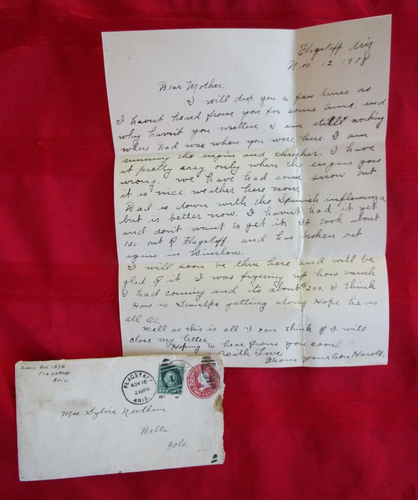 Flagstaff Ariz
Nov 12 1918
Dear Mother;
I will drop you a few lines as
I havent heard from you for some time, and
why havent you written I am still working
where Dad was when you were here I am
running the engine and checker. I have
it pretty easy only when the engine goes
wrong. We have had some snow but
it is nice weather here now.
Dad is down with the Spanish influenza
but is better now. I havent had it yet
and don't want to get it. It took about
out of Flagstaff, and has broken out
again in Winslow.
I will soon be thru here and will be
glad of it. I was figuring up how much
I had coming and its about I think
How is Grandpa getting along Hope he is
all O.K.
Well as this is all I can think of I will
close my letter
Hoping to hear from you soon
With Love
From your Son Harold.
Flagstaff
Ariz
FLAGSTAFF
NOV 18
ARIZ.
Mrs Sylvia Needham
Delta
Colo.